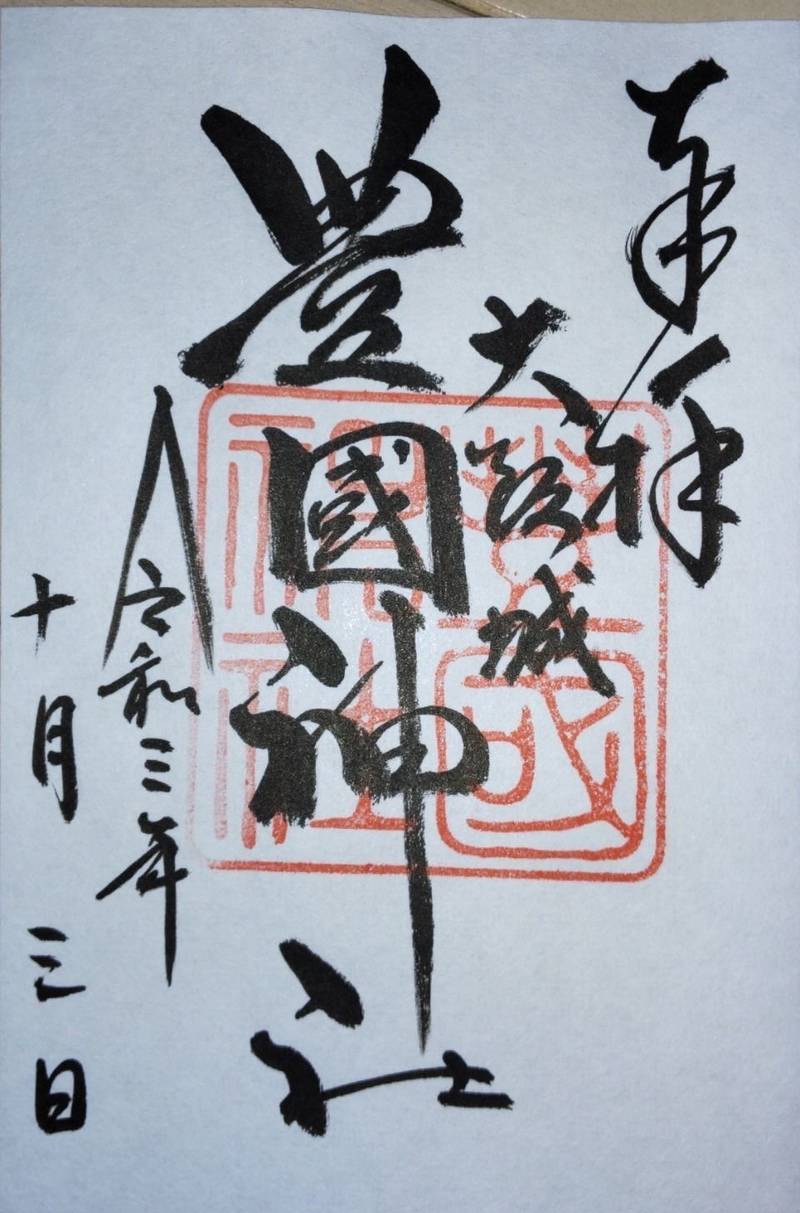 奉拝
大阪城
豊國神社
令和三年
十月三日
豊國神社